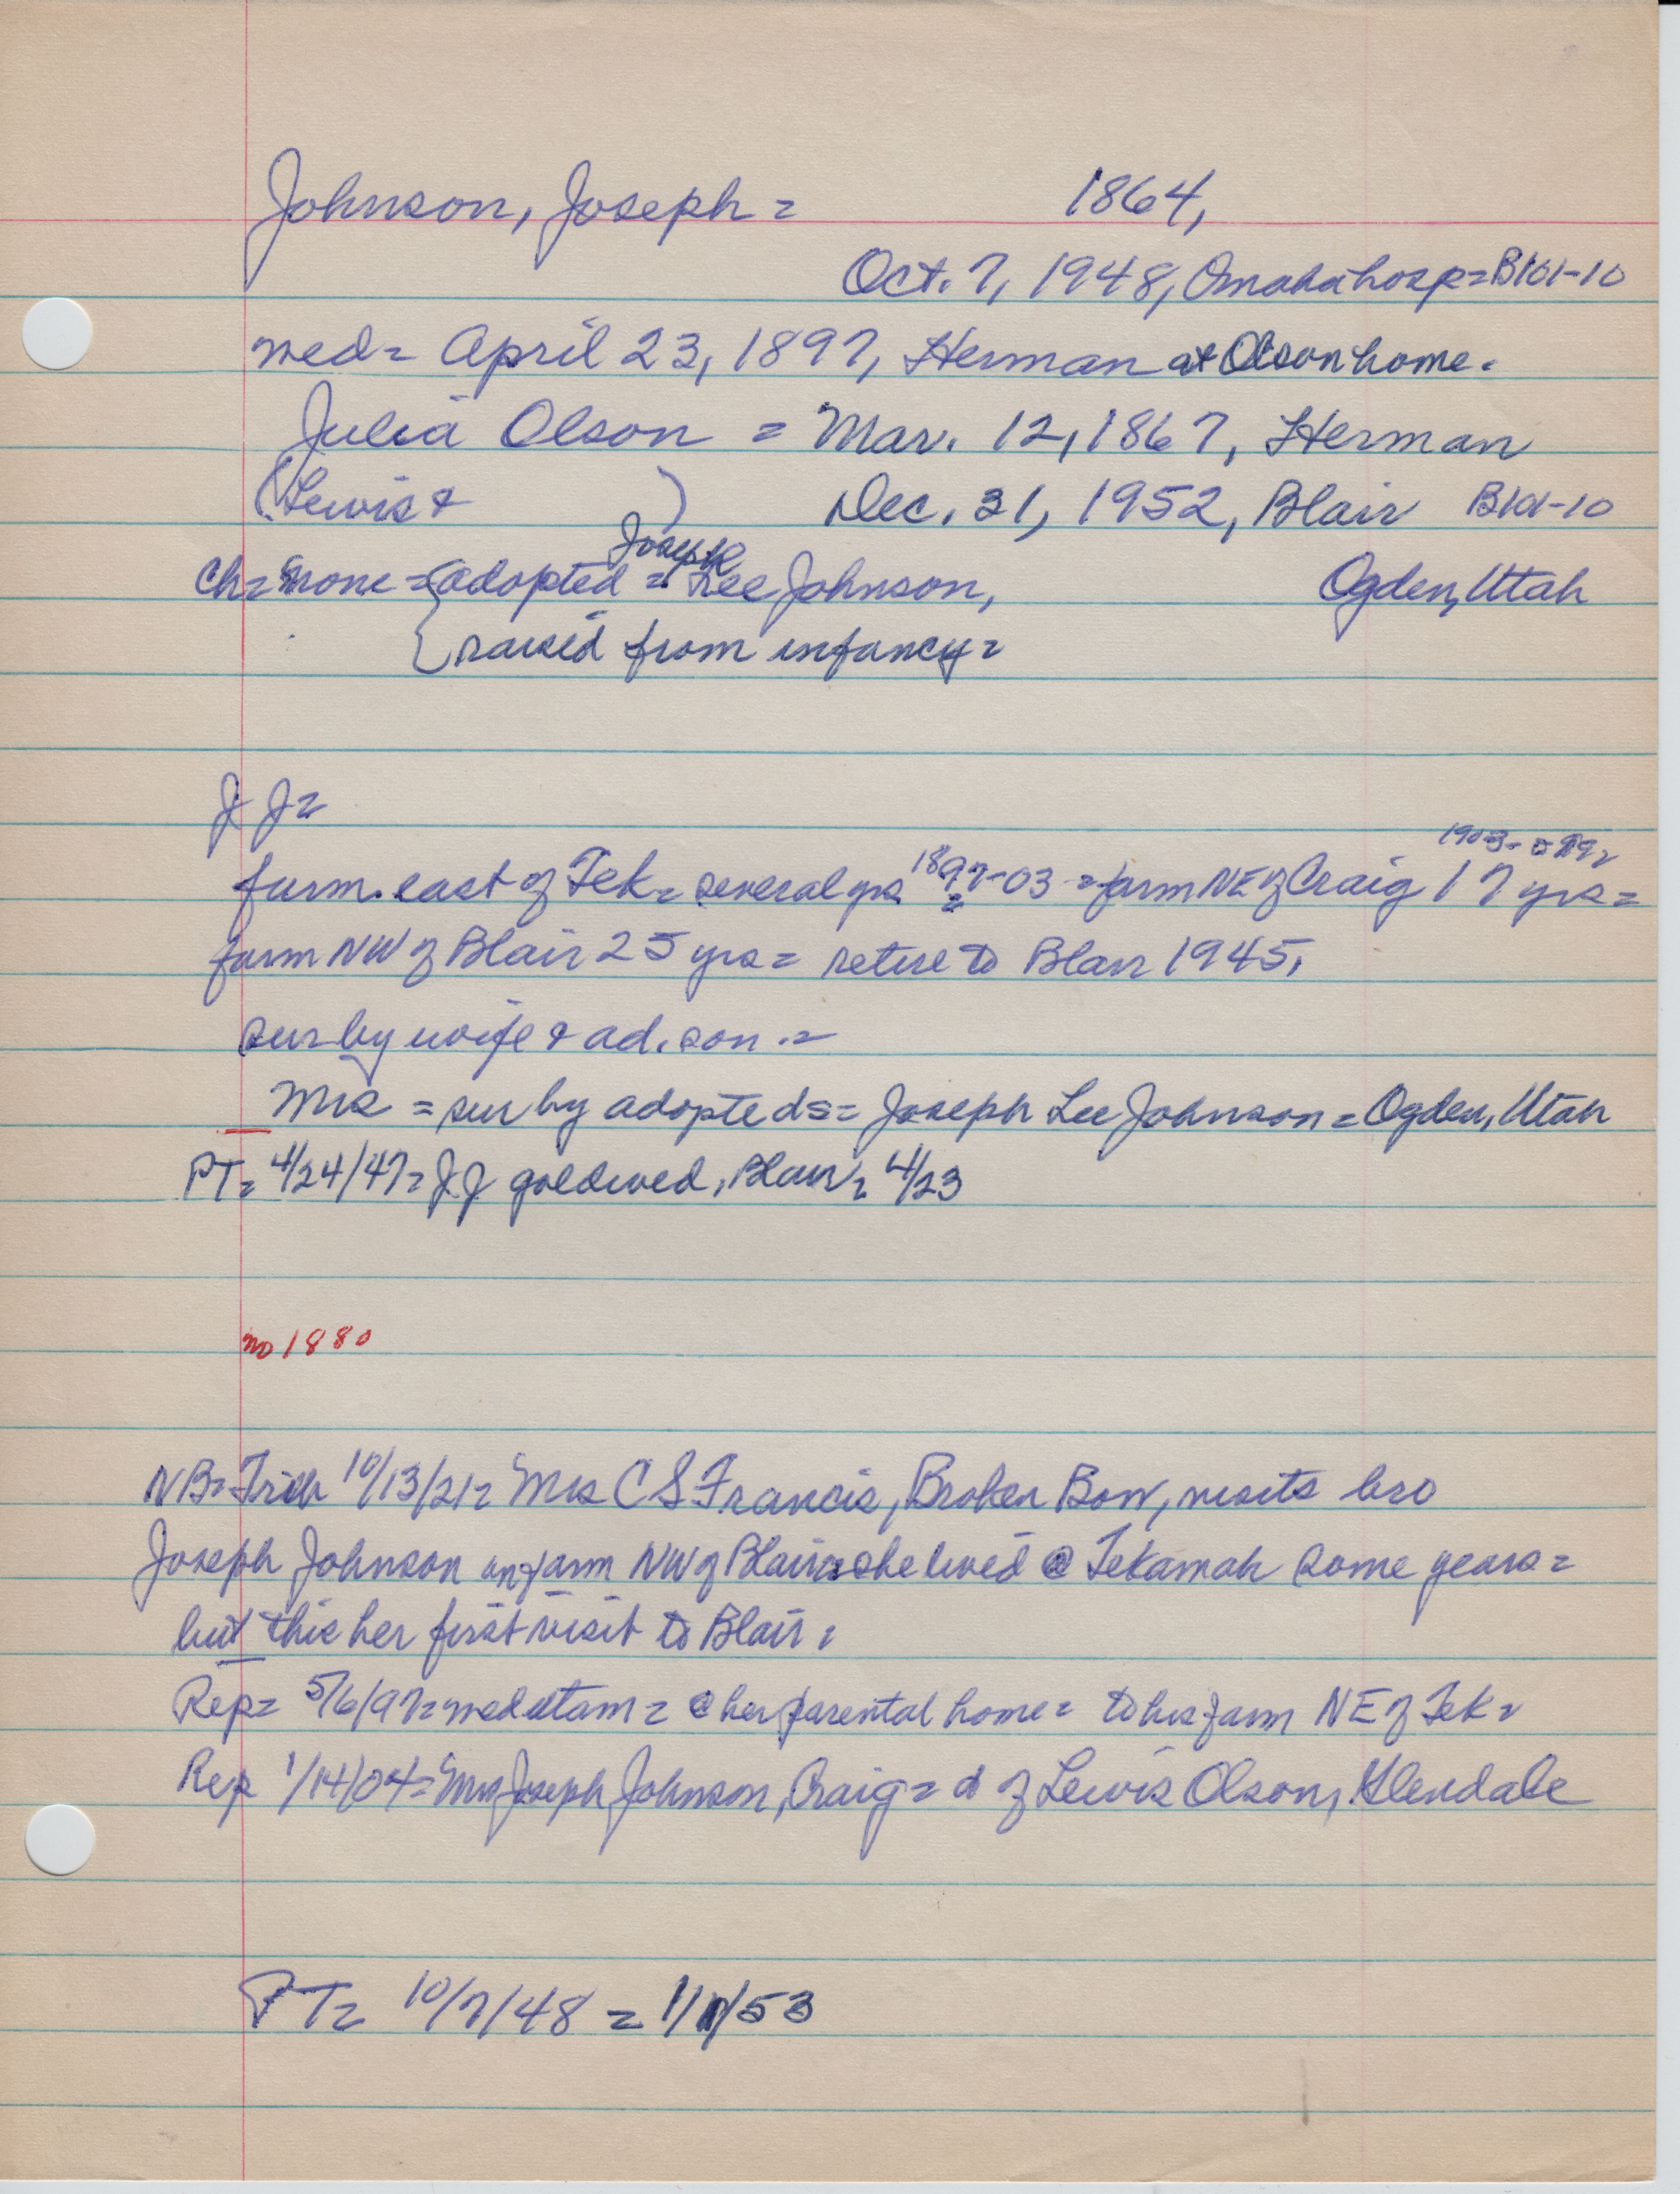 Johnson, Joseph = 1864,
Oct. 7, 1948, Omaha hosp = B101-10
wed = April 23, 1897, Herman at Olson home.
Julia Olson = Mar. 12, 1867, Herman
(Lewis & ) Dec. 31, 1952, Blair B101-10
Joseph
Ch = none = adopted = Lee Johnson, Ogden, Utah
raised from infancy =
J J =
1903-
farm east of Tek = several yrs 1897-03 = farm NE of Craig 17 yrs =
farm NW of Blair 25 yrs = retire to Blair 1945.
sur by wife & ad. son. =
Mrs = sur by adopted s = Joseph Lee Johnson = Ogden, Utah
PT = 4/24/47 = J J gold wed, Blair, 4/23
no 1880
NB = 10/13/21 = Mrs C S Francis, Broken Bow, visits bro
Joseph Johnson on farm NW of Blair = she lived @ Tekamah some years =
but this her first visit to Blair =
Rep = 5/6/97 = wed @ her parental home = to his farm NE of Tek =
Rep 1/14/04 = Mrs Joseph Johnson, Craig = d of Lewis Olson, Glendale
PT = 10/7/48 = 1/1/53